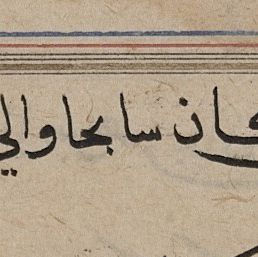 كان سابحا والي